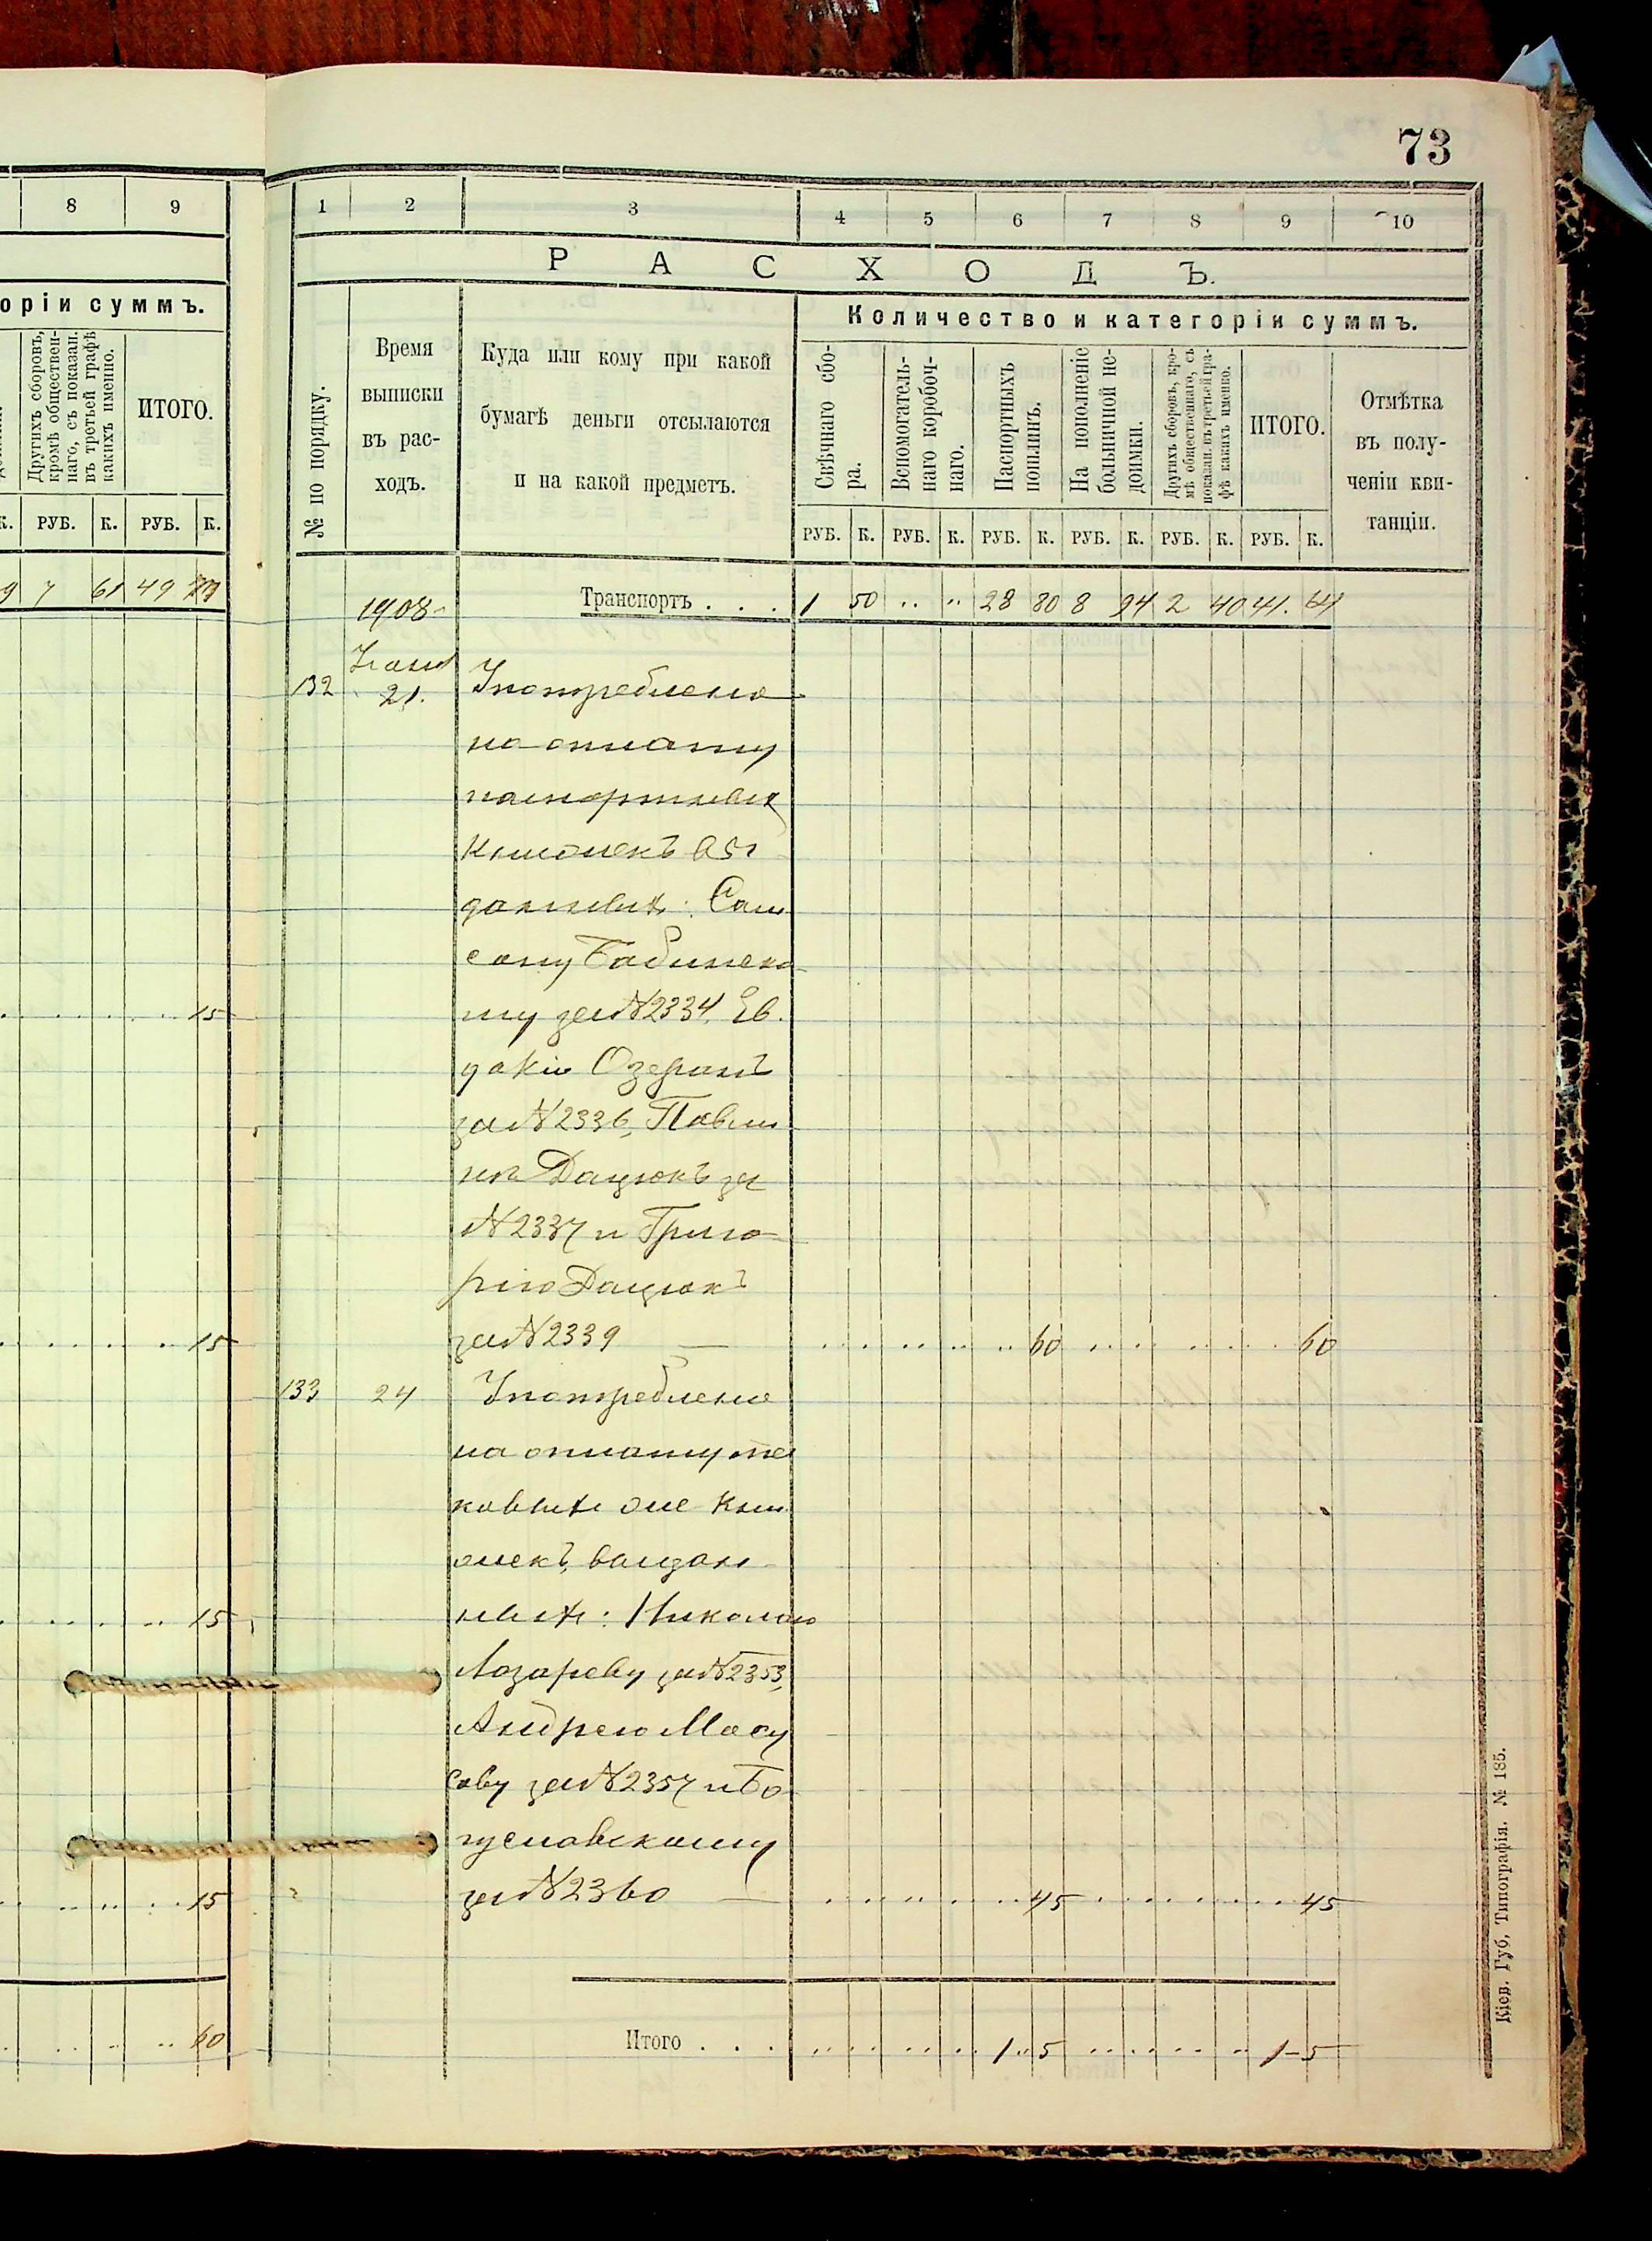 73
8 9
оріи суммъ.
Другихъ сборовъ,
кромѣ обществен-
наго, съ показан.
въ третьей графѣ
какихъ именно.
ИТОГО.
К. РУБ. К. РУБ. К.
9 7 61 49
15
15
15
15
60
1 2 3 4 5 6 7 8 9 10
РАСХОДЪ.
№ по порядку.
Время
выписки
въ рас-
ходъ.
Куда или кому при какой
бумагѣ деньги отсылаются
и на какой предметъ.
Количество и категоріи суммъ.
Свѣчнаго сбо-
ра.
Вспомогатель-
наго коробоч-
наго.
Паспортныхъ
пошлинъ.
На пополненіе
больничной не-
доимки.
Другихъ сборовъ, кро-
мѣ общественнаго, съ
показан. въ третьей гра-
фѣ какихъ именно.
ИТОГО.
Отмѣтка
въ полу-
ченіи кви-
танціи.
РУБ. К. РУБ. К. РУБ. К. РУБ. К. РУБ. К. РУБ. К.
1908 Транспортъ . . . 1 50 „ „ 28 80 8 94 2 40 41. 64
132 21. Употреблено
на оплату
паспортныхъ
книжекъ
Сам
сону Бабинско
му за №2334, Ев
докіи Озеранъ
за №2336, Павли
нѣ Дацюкъ за
№2337 и Григо
рію Дацюкъ
за №2339 60 60
133 24 Употреблено
на оплату та
ковыхъ же кни
жекъ, выдан
ныхъ: Николаю
Лазареву за №2353,
Андрею Мосу
сову за №2357 и Бо
гуславскому
за №2360 45 45
Итого . . . 1 „ 5 1-5
Кіев. Губ. Типографія. № 185.